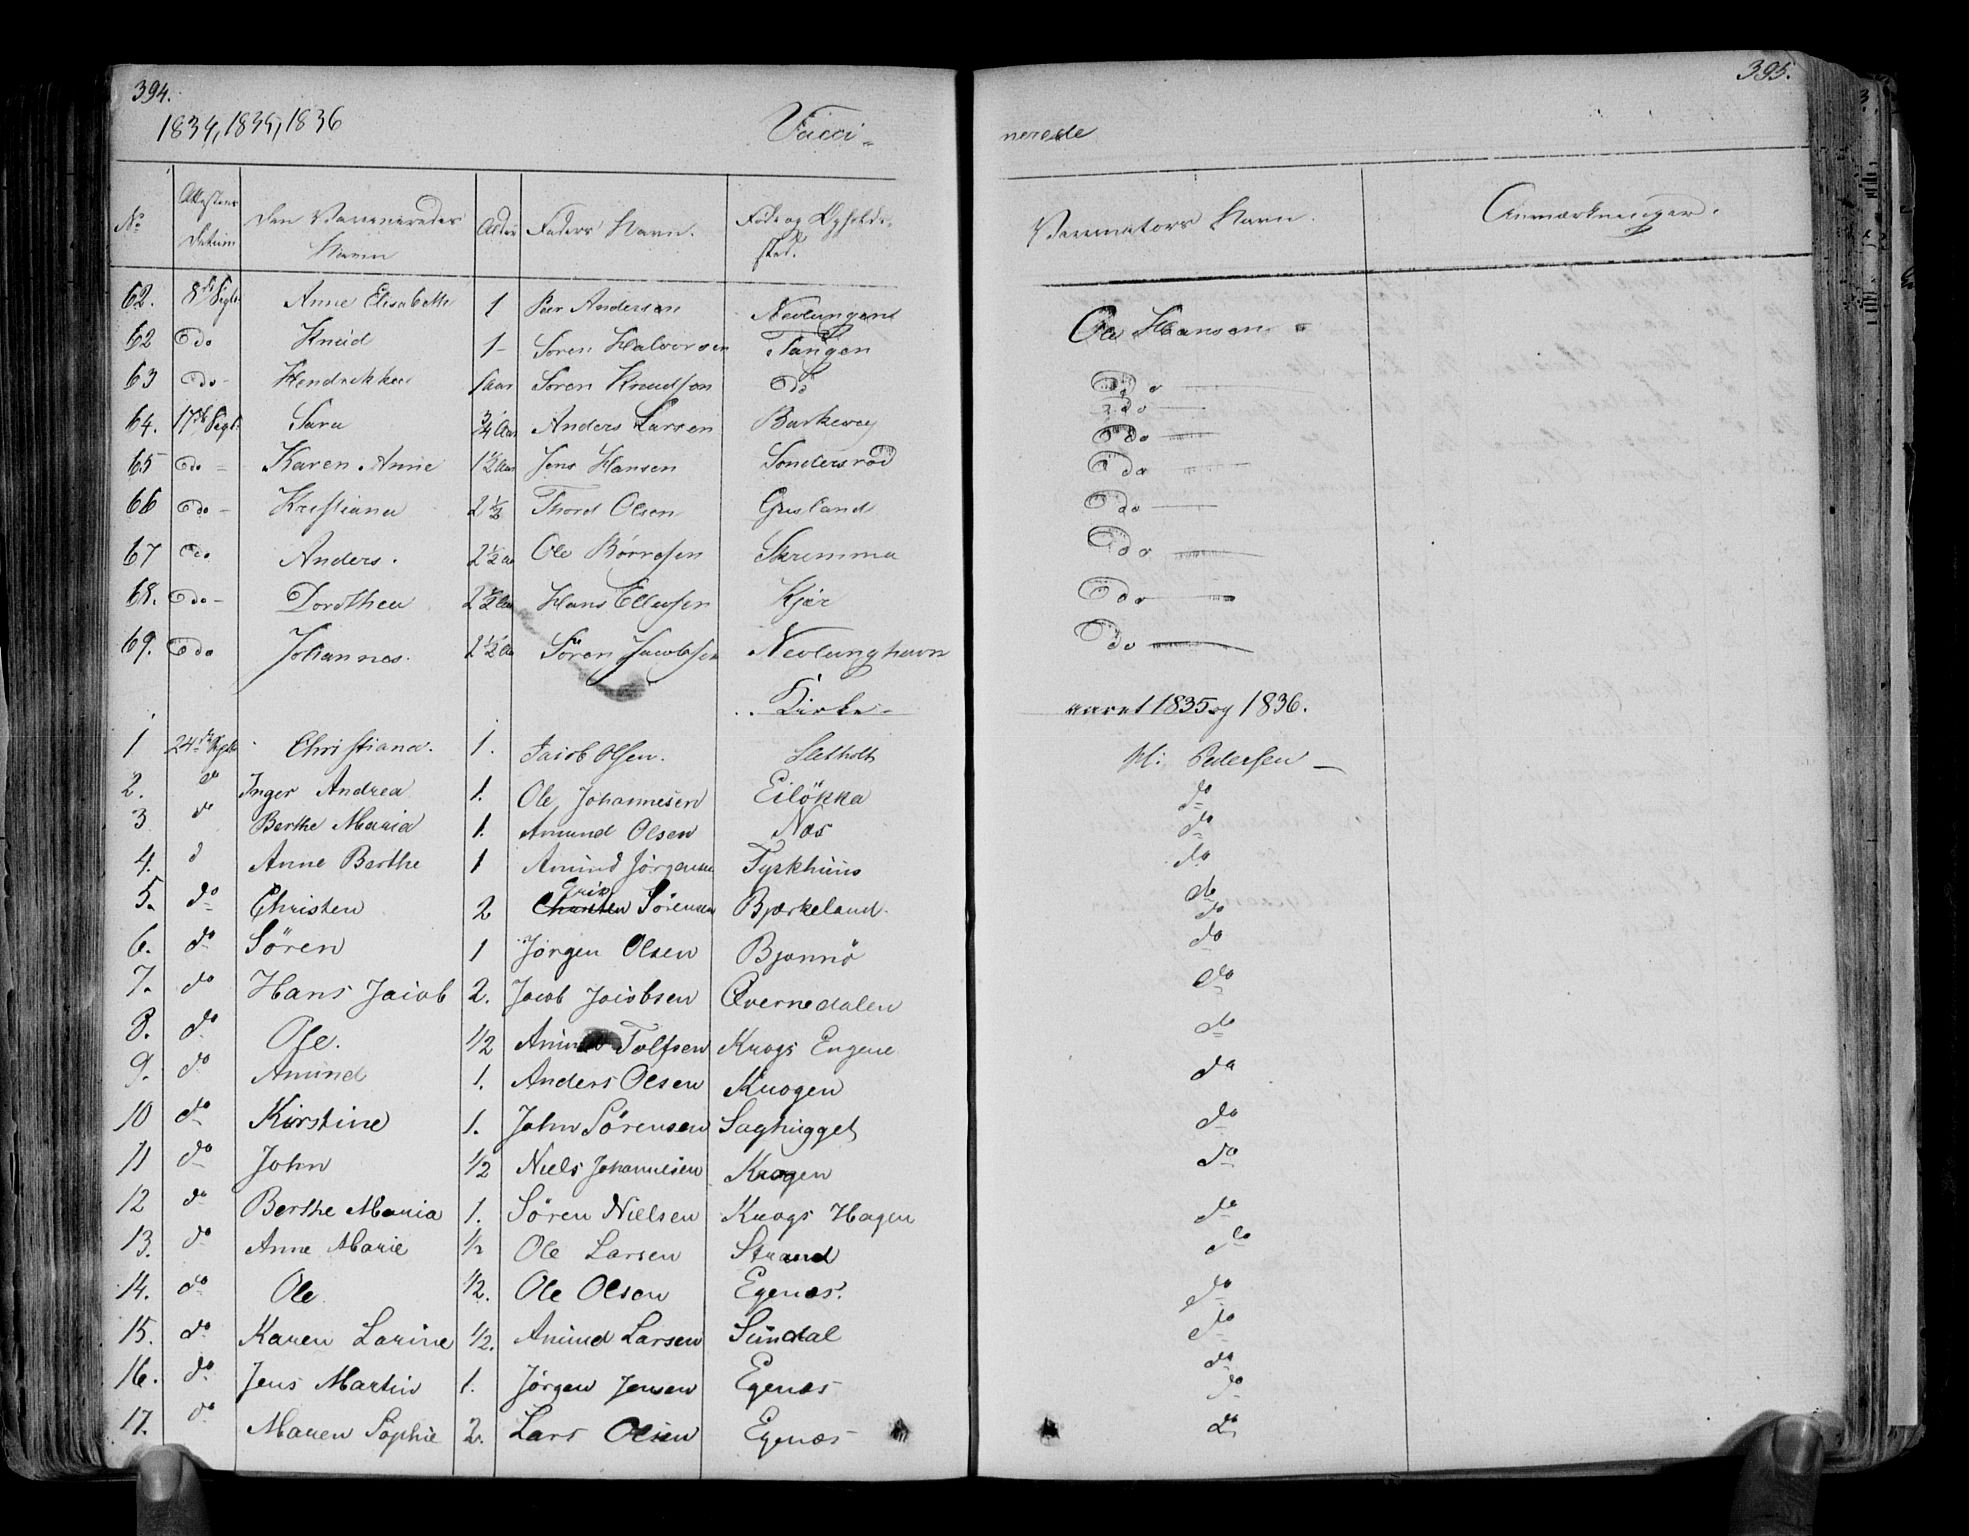 394. 395.
1834, 1835, 1836 Vacci- nerede
No Attestens Datum Den Vaccineredes Navn Alder Faders Navn. Føde og Opholds- sted. Vaccinators Navn. Anmærkninger.
62. 8de Septb Anne Elisabeth 1 Per Andersen Nevlungens Ole Hansen
62 do Knud 1 Soren Halvorsen Tangen
63 do Hendrikke 1 aar Soren Knudsen do do
64. 17de Sept. Sara 3/4 Aar Anders Larsen Barkevig do
65 do Karen Anne 1 1/2 Aar Jens Hansen Sondersrød do
66 do Kristiana 2 1/2 Thord Olsen Gusland do
67 do Anders. 2 1/2 Aa Ole Børresen Skremma do
68. do Dorothea 2 1/2 Aar Hans Ellefsen Kjær do
69. do Johannes. 2 1/2 Aa Sören Jacobsen Nevlunghavn do
Kirke- aaret 1835 og 1836.
1 24de Septb Christiana. 1. Jacob Olsen. Sletholt H: Pedersen
2. do Inger Andrea 1. Ole Johannesen Eiløkka do
3 do Berthe Maria 1. Amund Olsen Næs do
4. d Anne Berthe 1 Amund Jørgensen Tyskhuus do
5. do Christen 2 Christen Erik Sörensen Bjørkeland. do
6. do Sören 1 Jørgen Olsen Bjønnø do
7. do Hans Jacob 2. Jacob Jacobsen Qvernedalen do
8. do Ole. 1/2 Amund Tolfsen Krogs Engene do
9. do Amund 1. Anders Olsen Krogen do
10 do Kirstine 1. John Sörensen Saghugget do
11 do John 1/2 Niels Johannesen Krogen do
12 do Berthe Maria 1. Søren Nielsen Krogs Hagen do
13. do Anne Marie 1/2 Ole Larsen Strand do
14. do Ole 1/2. Ole Olsen Egenæs. do
15. do Karen Larine 1/2. Amund Larsen Sundal do
16. do Jens Martin 1. Jørgen Jensen Egenæs do
17. do Maren Sophie 2. Lars Olsen Egenæs do